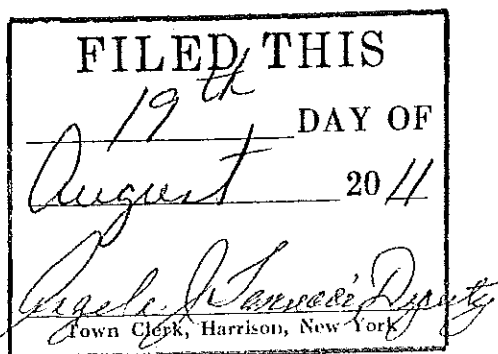 FILED THIS
19th DAY OF
August 2011
Angela J Deputy
Town Clerk, Harrison, New York